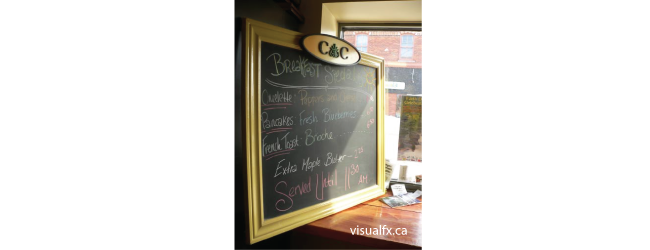 C&C
Breakfast
Omelette:
Pancakes Fresh Blueberries
French Toast Brioche
Extra Maple Butter
Served Until 11:30 AM
visualfx.ca